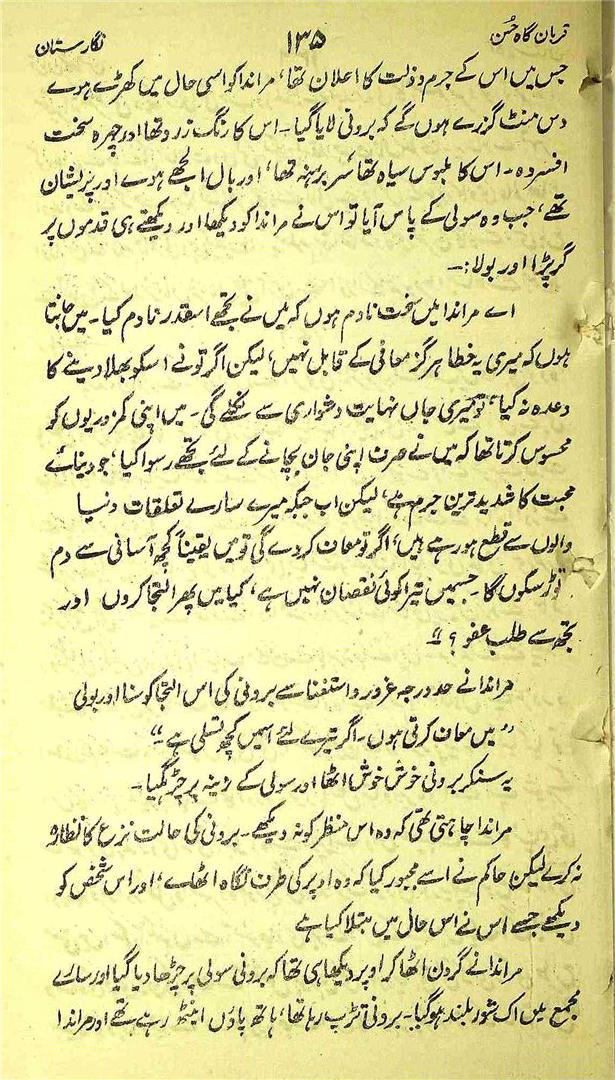 قربان گاہ حُسن ۱۳۵ نگارستان
جس میں اس کے جرم و ذلت کا اعلان تھا، مراندا کو اسی حال میں کھڑے ہوے
دس منٹ گزرے ہوں گے کہ برونی لایا گیا۔ اس کا رنگ زرد تھا اور چہرہ سخت
افسردہ۔ اس کا ملبوس سیاہ تھا سر برہنہ تھا، اور بال الجھے ہوے اور پریشان
تھے، جب وہ سولی کے پاس آیا تو اس نے مراندا کو دیکھا اور دیکھتے ہی قدموں پر
گر پڑا اور بولا:۔
اے مراندا میں سخت نادم ہوں کہ میں نے تجھے اسقدر نادم کیا۔ میں جانتا
ہوں کہ میری یہ خطا ہرگز معافی کے قابل نہیں، لیکن اگر تونے اسکو بھلا دینے کا
وعدہ نہ کیا، تو میری جاں نہایت دشواری سے نکلے گی۔ میں اپنی کمزوریوں کو
محسوس کرتا تھا کہ میں نے صرف اپنی جان بچانے کے لئے تجھے رسوا کیا، جو دینائے
محبت کا شدید ترین جرم ہے، لیکن اب جبکہ میرے سارے تعلقات دنیا
والوں سے قطع ہو رہے ہیں، اگر تو معاف کر دے گی تو میں یقیناً کچھ آسانی سے دم
توڑ سکوں گا۔ جسمیں تیرا کوئی نقصان نہیں ہے، کیا میں پھر التجا کروں اور
تجھ سے طلب عفو؟“۔
مراندا نے حد درجہ غرور و استغنا سے برونی کی اس التجا کو سنا اور بولی
”میں معاف کرتی ہوں۔ اگر تیرے لئے اسمیں کچھ تسلی ہے“۔
یہ سنکر برونی خوش خوش اٹھا اور سولی کے زینہ پر چڑھ گیا۔
مراندا چاہتی تھی کہ وہ اس منظر کو نہ دیکھے۔ برونی کی حالت نزع کا نظارہ
نہ کرے لیکن حاکم نے اسے مجبور کیا کہ وہ اوپر کی طرف نگاہ اٹھاے، اور اس شخص کو
دیکھے جسے اس نے اس حال میں مبتلا کیا ہے
مراندا نے گردن اٹھا کر اوپر دیکھا ہی تھا کہ برونی سولی پر چڑھا دیا گیا اور سارے
مجمع میں اک شور بلند ہو گیا۔ برونی تڑپ رہا تھا، ہاتھ پاؤں اینٹھ رہے تھے اور مراندا